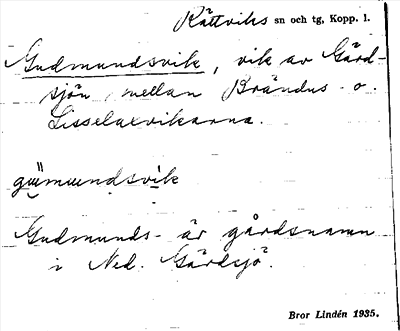 Rättviks sn och tg, Kopp. l.
Gudmundsvik, vik av Gärd-
sjön mellan Brändus- o.
Lisselaxvikarna.
gu̎mundsvik
Gudmunds- är gårdsnamn
i Ned. Gärdsjö.
Bror Lindén 1935.